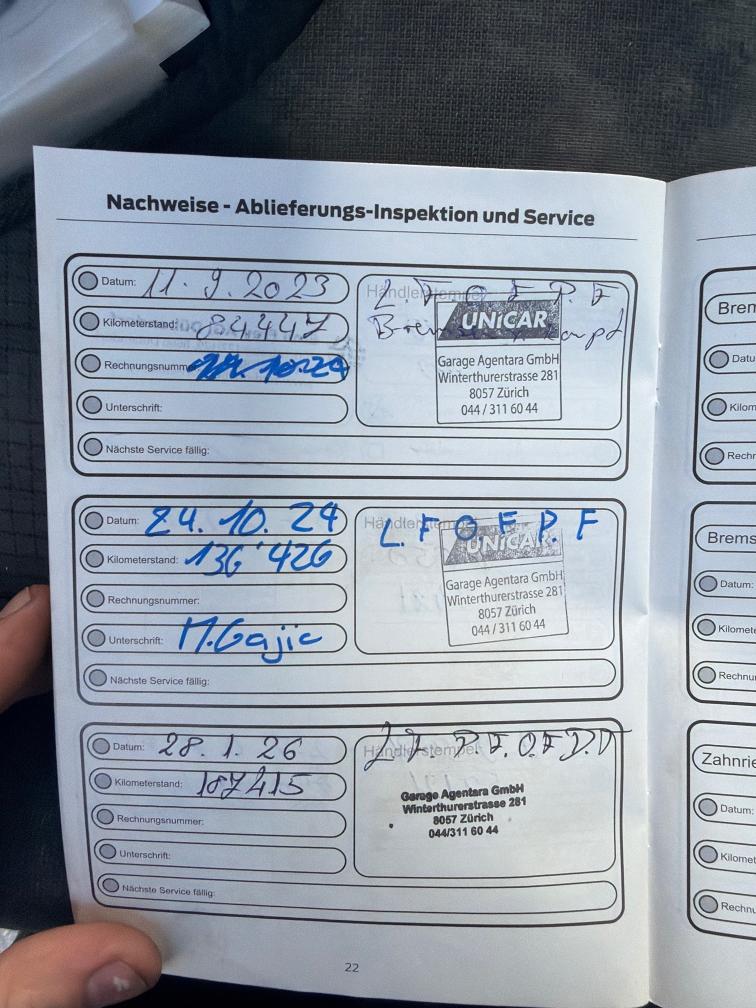 Nachweise - Ablieferungs-Inspektion und Service
Datum: 11.9.2023
Kilometerstand: 84447
Rechnungsnumm
Unterschrift:
Nächste Service fällig:
Händlerstempel
UNiCAR
Garage Agentara GmbH
Winterthurerstrasse 281
8057 Zürich
044 / 311 60 44
Datum: 24. 10. 24
Kilometerstand: 136'426
Rechnungsnummer:
Unterschrift: M.Gajic
Nächste Service fällig:
L. F O F P. F
UNiCAR
Garage Agentara GmbH
Winterthurerstrasse 281
8057 Zürich
044 / 311 60 44
Datum: 28. 1. 26
Kilometerstand: 187415
Rechnungsnummer:
Unterschrift:
Nächste Service fällig:
Händlerstempel
Garage Agentara GmbH
Winterthurerstrasse 281
8057 Zürich
044/311 60 44
22
Brem
Datu
Kilom
Rechr
Brems
Datum:
Kilomete
Rechnu
Zahnrie
Datum:
Kilomet
Rechnu